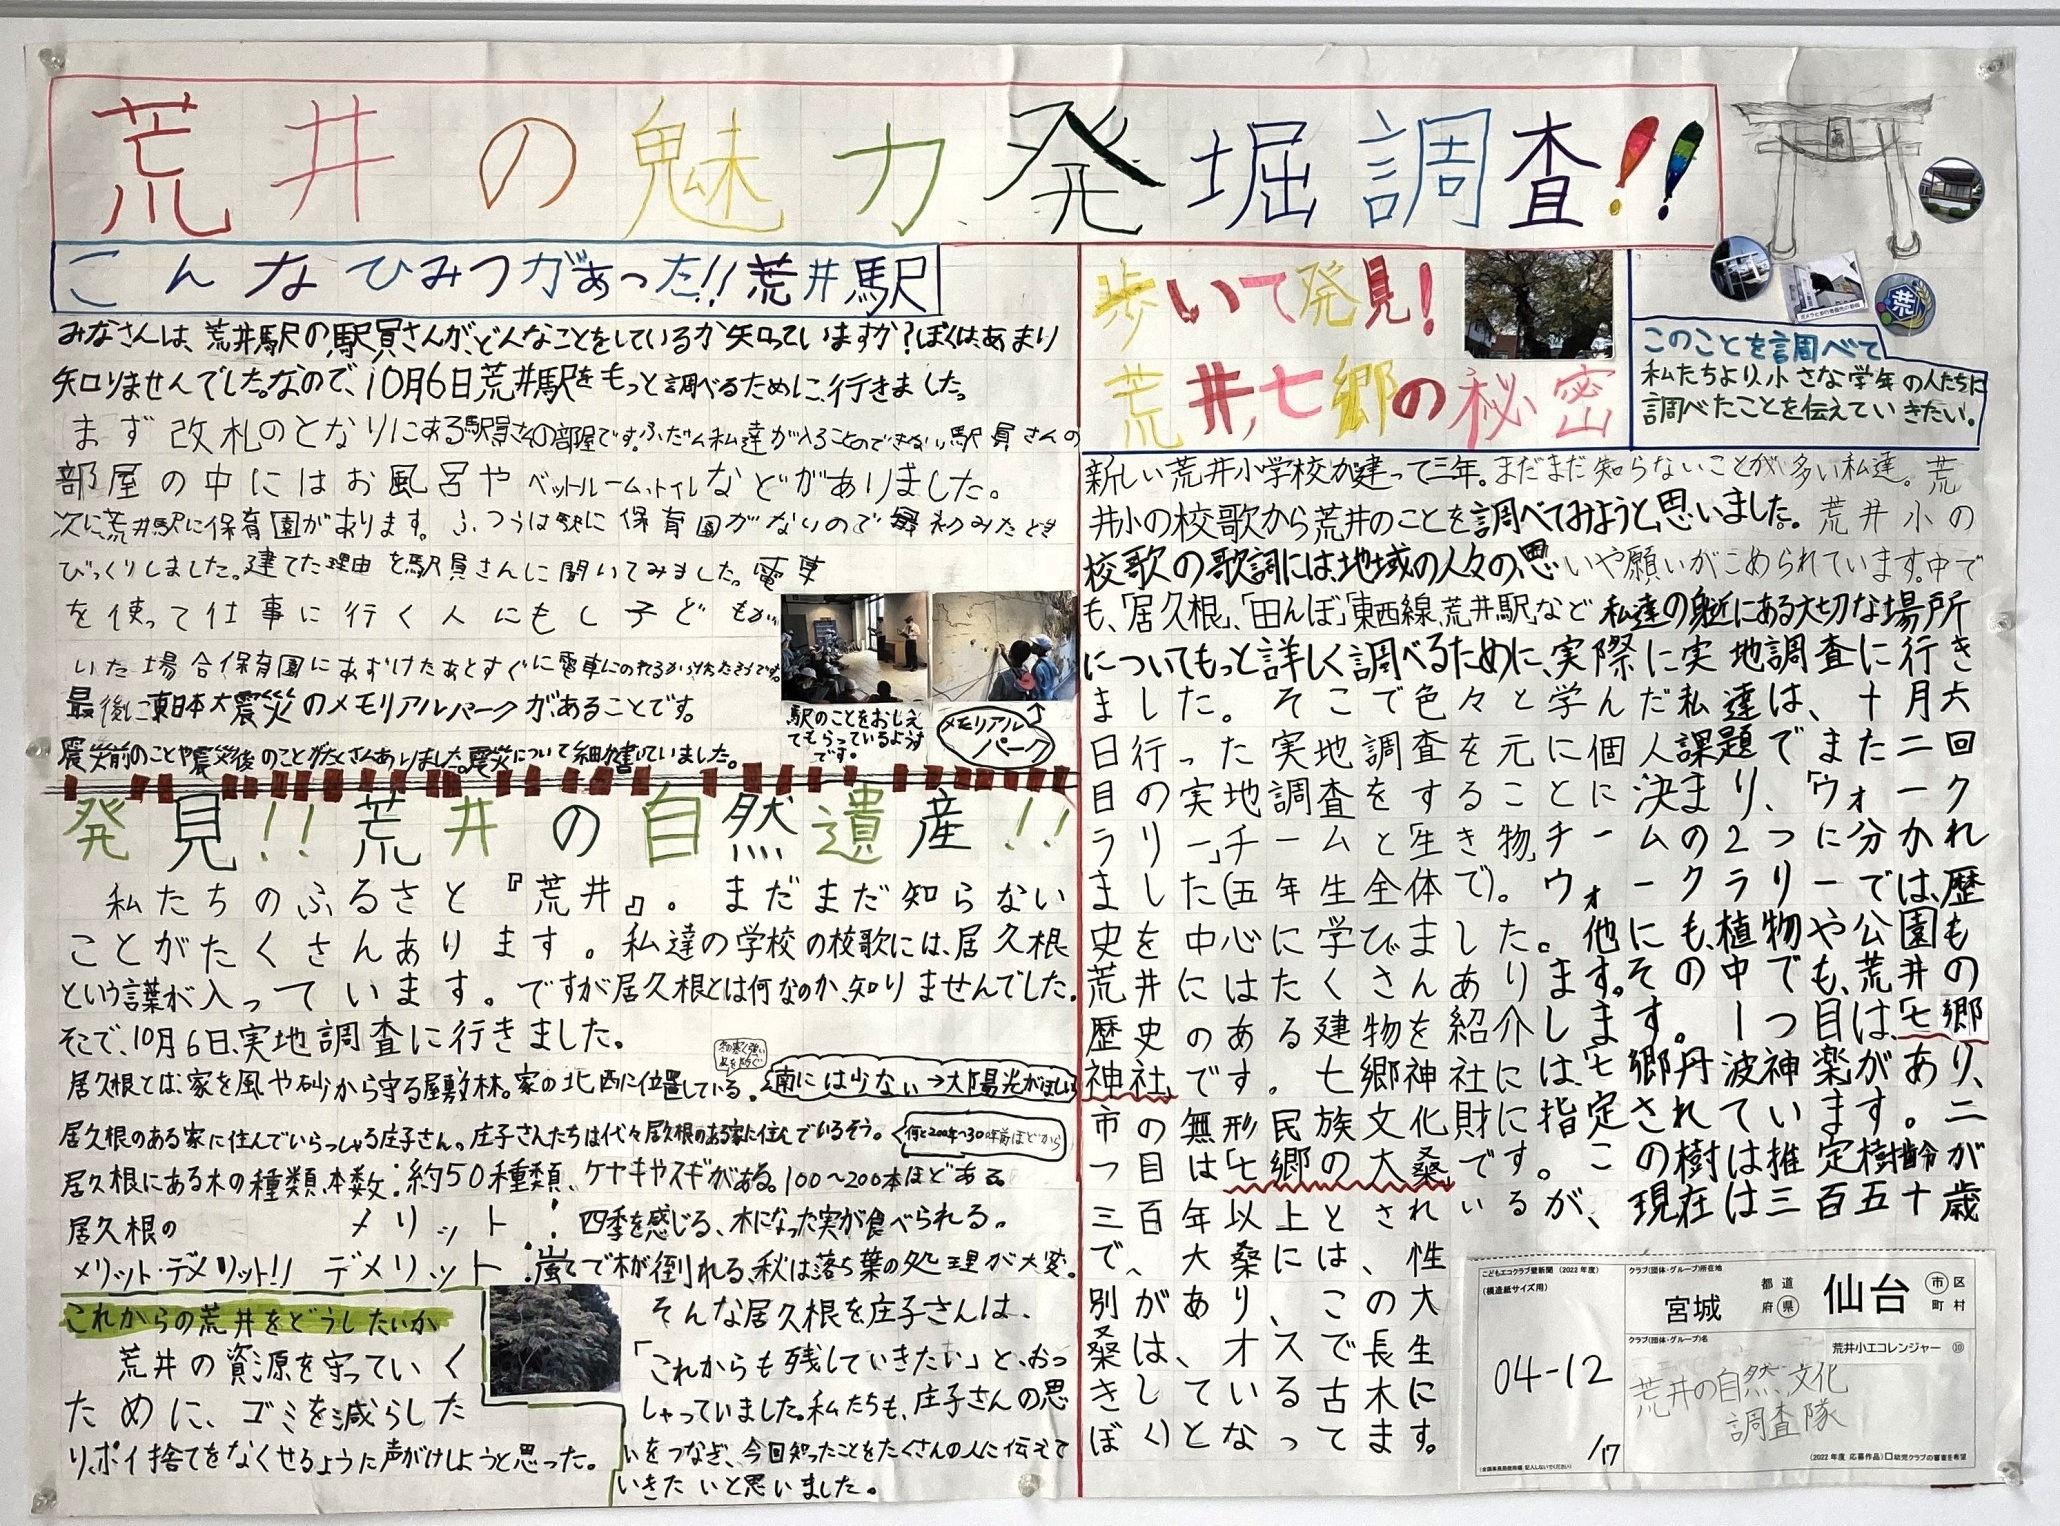 荒井の魅力発掘調査!!
こんなひみつがあった!!荒井駅
みなさんは、荒井駅の駅員さんが、どんなことをしているか知っていますか?ぼくは、あまり
知りませんでした。なので、10月6日荒井駅をもっと調べるために、行きました。
まず改札のとなりにある駅員さんの部屋です。ふだん私達が入ることのできない駅員さんの
部屋の中にはお風呂やベットルーム、トイレなどがありました。
次に荒井駅に保育園があります。ふつうは駅に保育園がないので最初みたとき
びっくりしました。建てた理由を駅員さんに聞いてみました。電車
を使って仕事に行く人にもし子どもが
いた場合保育園にあずけたあとすぐに電車にのれるからだそうです。
最後に東日本大震災のメモリアルパークがあることです。
震災前のことや震災後のことがたくさんありました。震災について細かく書いていました。
駅のことをおしえ
てもらっているようす
です。
メモリアル
パーク
発見!!荒井の自然遺産!!
私たちのふるさと『荒井』。まだまだ知らない
ことがたくさんあります。私達の学校の校歌には、居久根
という言葉が入っています。ですが居久根とは何なのか、知りませんでした。
そこで、10月6日、実地調査に行きました。
居久根とは、家を風や砂から守る屋敷林。家の北西に位置している。
冬の寒く強い
南には少ない→太陽光がほしい
居久根のある家に住んでいらっしゃる庄子さん。庄子さんたちは代々居久根のある家に住んでいるそう。
何と200年~300年前ほどから
居久根にある木の種類、本数:約50種類、ケヤキやスギがある。100~200本ほどある。
居久根の メリット:四季を感じる、木になった実が食べられる。
メリット・デメリット!! デメリット:嵐で木が倒れる、秋は落ち葉の処理が大変。
これからの荒井をどうしたいか
荒井の資源を守っていく
ために、ゴミを減らした
り、ポイ捨てをなくせるように声がけしようと思った。
そんな居久根を庄子さんは、
「これからも残していきたい」と、おっ
しゃっていました。私たちも、庄子さんの思
いをつなぎ、今回知ったことをたくさんの人に伝えて
いきたいと思いました。
歩いて発見!
荒井、七郷の秘密
このことを調べて
私たちより、小さな学年の人たちに
調べたことを伝えていきたい。
荒
新しい荒井小学校が建って三年。まだまだ知らないことが多い私達。荒
井小の校歌から荒井のことを調べてみようと思いました。荒井小の
校歌の歌詞には、地域の人々の思いや願いがこめられています。中で
も、「居久根」、「田んぼ」「東西線、荒井駅」など私達の身近にある大切な場所
についてもっと詳しく調べるために、実際に実地調査に行き
ました。そこで色々と学んだ私達は、十月六
日行った実地調査を元に個人課題でまた二回
目の実地調査をすることに決まり、「ウォーク
ラリー」チームと「生き物」チームの2つに分かれ
ました(五年生全体で)。ウォークラリーでは、歴
史を中心に学びました。他にも、植物や公園も
荒井にはたくさんあります。その中でも、荒井の
歴史のある建物を紹介します。1つ目は、「七郷
神社」です。七郷神社には、七郷丹波神楽があり、
市の無形民族文化財に指定されています。二
つ目は「七郷の大桑」です。この樹は推定樹齢が
三百年以上とされいるが、現在は三百五十歳
で、大桑には、性
別があり、この大
桑は、オスで長生
きしている古木に
ぼくとなってます。
こどもエコクラブ壁新聞(2022年度)
(模造紙サイズ用)
04-12
/17
(全国事務局使用欄 記入しないでください)
クラブ(団体・グループ)所在地
宮城 都道府県 仙台 市区町村
クラブ(団体・グループ)名
荒井小エコレンジャー ⑩
荒井の自然、文化
調査隊
(2022年度 応募作品)□幼児クラブの審査を希望